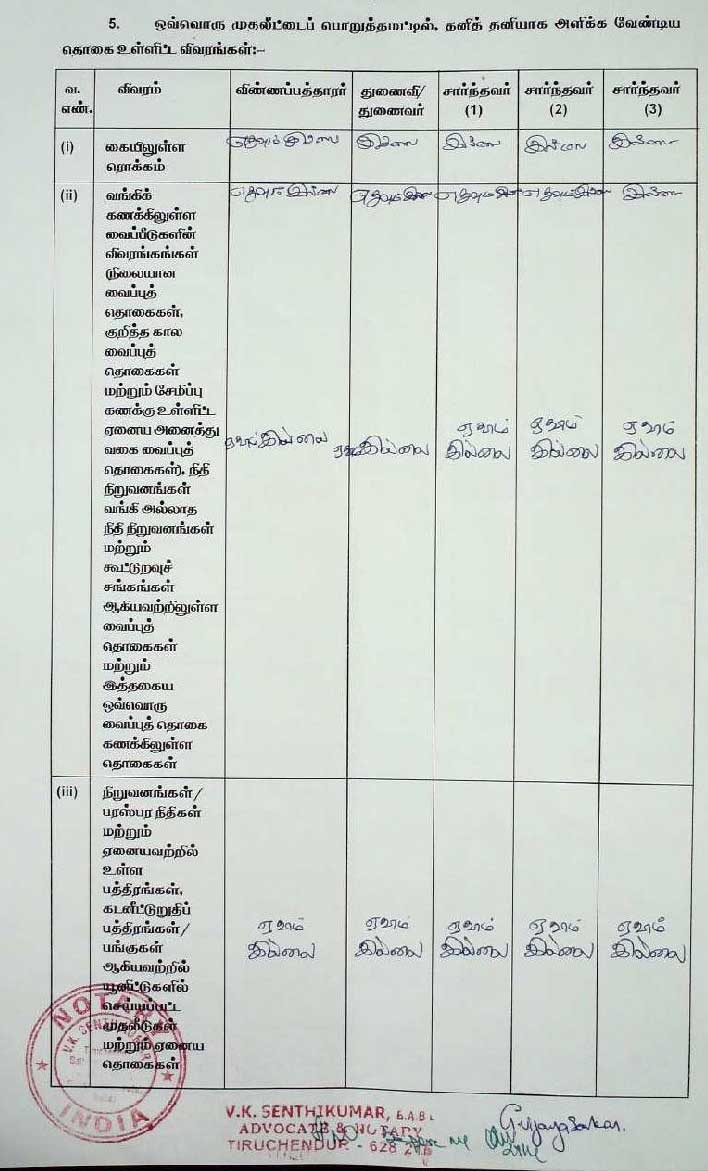 5. ஒவ்வொரு முதலீட்டைப் பொறுத்தமட்டில், தனித் தனியாக அளிக்க வேண்டிய
தொகை உள்ளிட்ட விவரங்கள்:-
வ. எண். விவரம் விண்ணப்பத்தாரர் துணைவி/ துணைவர் சார்ந்தவர் (1) சார்ந்தவர் (2) சார்ந்தவர் (3)
(i) கையிலுள்ள எதுவும் இல்லை இல்லை இல்லை இல்லை இல்லை
ரொக்கம்
(ii) வங்கிக் எதுவும் இல்லை எதுவும் இல்லை எதுவும் இல்லை எதுவும் இல்லை இல்லை
கணக்கிலுள்ள
வைப்பீடுகளின்
விவரங்கங்கள்
(நிலையான
வைப்புத்
தொகைகள்,
குறித்த கால
வைப்புத்
தொகைகள்
மற்றும் சேமிப்பு
கணக்கு உள்ளிட்ட
ஏனைய அனைத்து
வகை வைப்புத் ஏதும் இல்லை ஏதும் இல்லை ஏதும் இல்லை ஏதும் இல்லை ஏதும் இல்லை
தொகைகள்), நிதி
நிறுவனங்கள்
வங்கி அல்லாத
நிதி நிறுவனங்கள்
மற்றும்
கூட்டுறவுச்
சங்கங்கள்
ஆகியவற்றிலுள்ள
வைப்புத்
தொகைகள்
மற்றும்
இத்தகைய
ஒவ்வொரு
வைப்புத் தொகை
கணக்கிலுள்ள
தொகைகள்
(iii) நிறுவனங்கள்/
பரஸ்பர நிதிகள்
மற்றும்
ஏனையவற்றில்
உள்ள
பத்திரங்கள்,
கடனீட்டுறுதிப்
பத்திரங்கள்/ ஏதும் ஏதும் ஏதும் ஏதும் ஏதும்
பங்குகள் இல்லை இல்லை இல்லை இல்லை இல்லை
ஆகியவற்றில்
யூனிட்டுகளில்
செய்யப்பட்ட
முதலீடுகள்
மற்றும் ஏனைய
தொகைகள்
NOTARY
V.K. SENTHIKUMAR
INDIA
V.K. SENTHIKUMAR, B.A.B.L
ADVOCATE & NOTARY
TIRUCHENDUR - 628 215